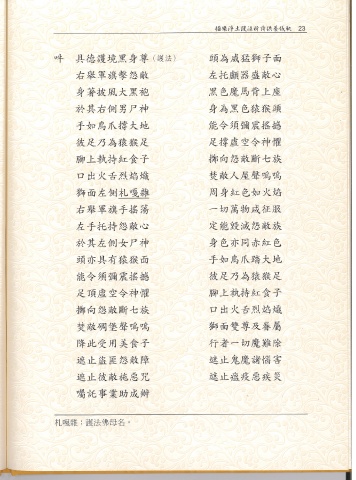 淨土護法祈 供養儀軌 23
吽 具德護境黑身尊(護法) 頭為威猛獅子面
右舉軍旗擊怨敵 左托顱器盛敵心
身著披風大黑袍 黑色魔馬背上座
於其右側男尸神 身為黑色猿猴頭
手如鳥爪撐大地 能令須彌震搖撼
彼足乃為猿猴足 足撐虛空令神懼
腳上執持紅食子 擲向怨敵斷七族
口出火舌烈焰熾 焚敵人屋聲嗚嗚
獅面左側札嘎雜 周身紅色如火焰
右舉軍旗手搖蕩 一切萬物咸征服
左手托持怨敵心 定能毀滅怨敵族
於其左側女尸神 身色亦同赤紅色
頭亦具有猿猴面 手如鳥爪踏大地
能令須彌震搖撼 彼足乃為猿猴足
足頂虛空令神懼 腳上執持紅食子
擲向怨敵斷七族 口出火舌烈焰熾
焚敵碉堡聲嗚嗚 獅面雙尊及眷屬
降此受用美食子 行者一切魔難除
遮止盜匪怨敵障 遮止鬼魔諸惱害
遮止彼敵施惡咒 遮止瘟疫惡疾災
囑託事業助成辦
札嘎雜：護法佛母名。